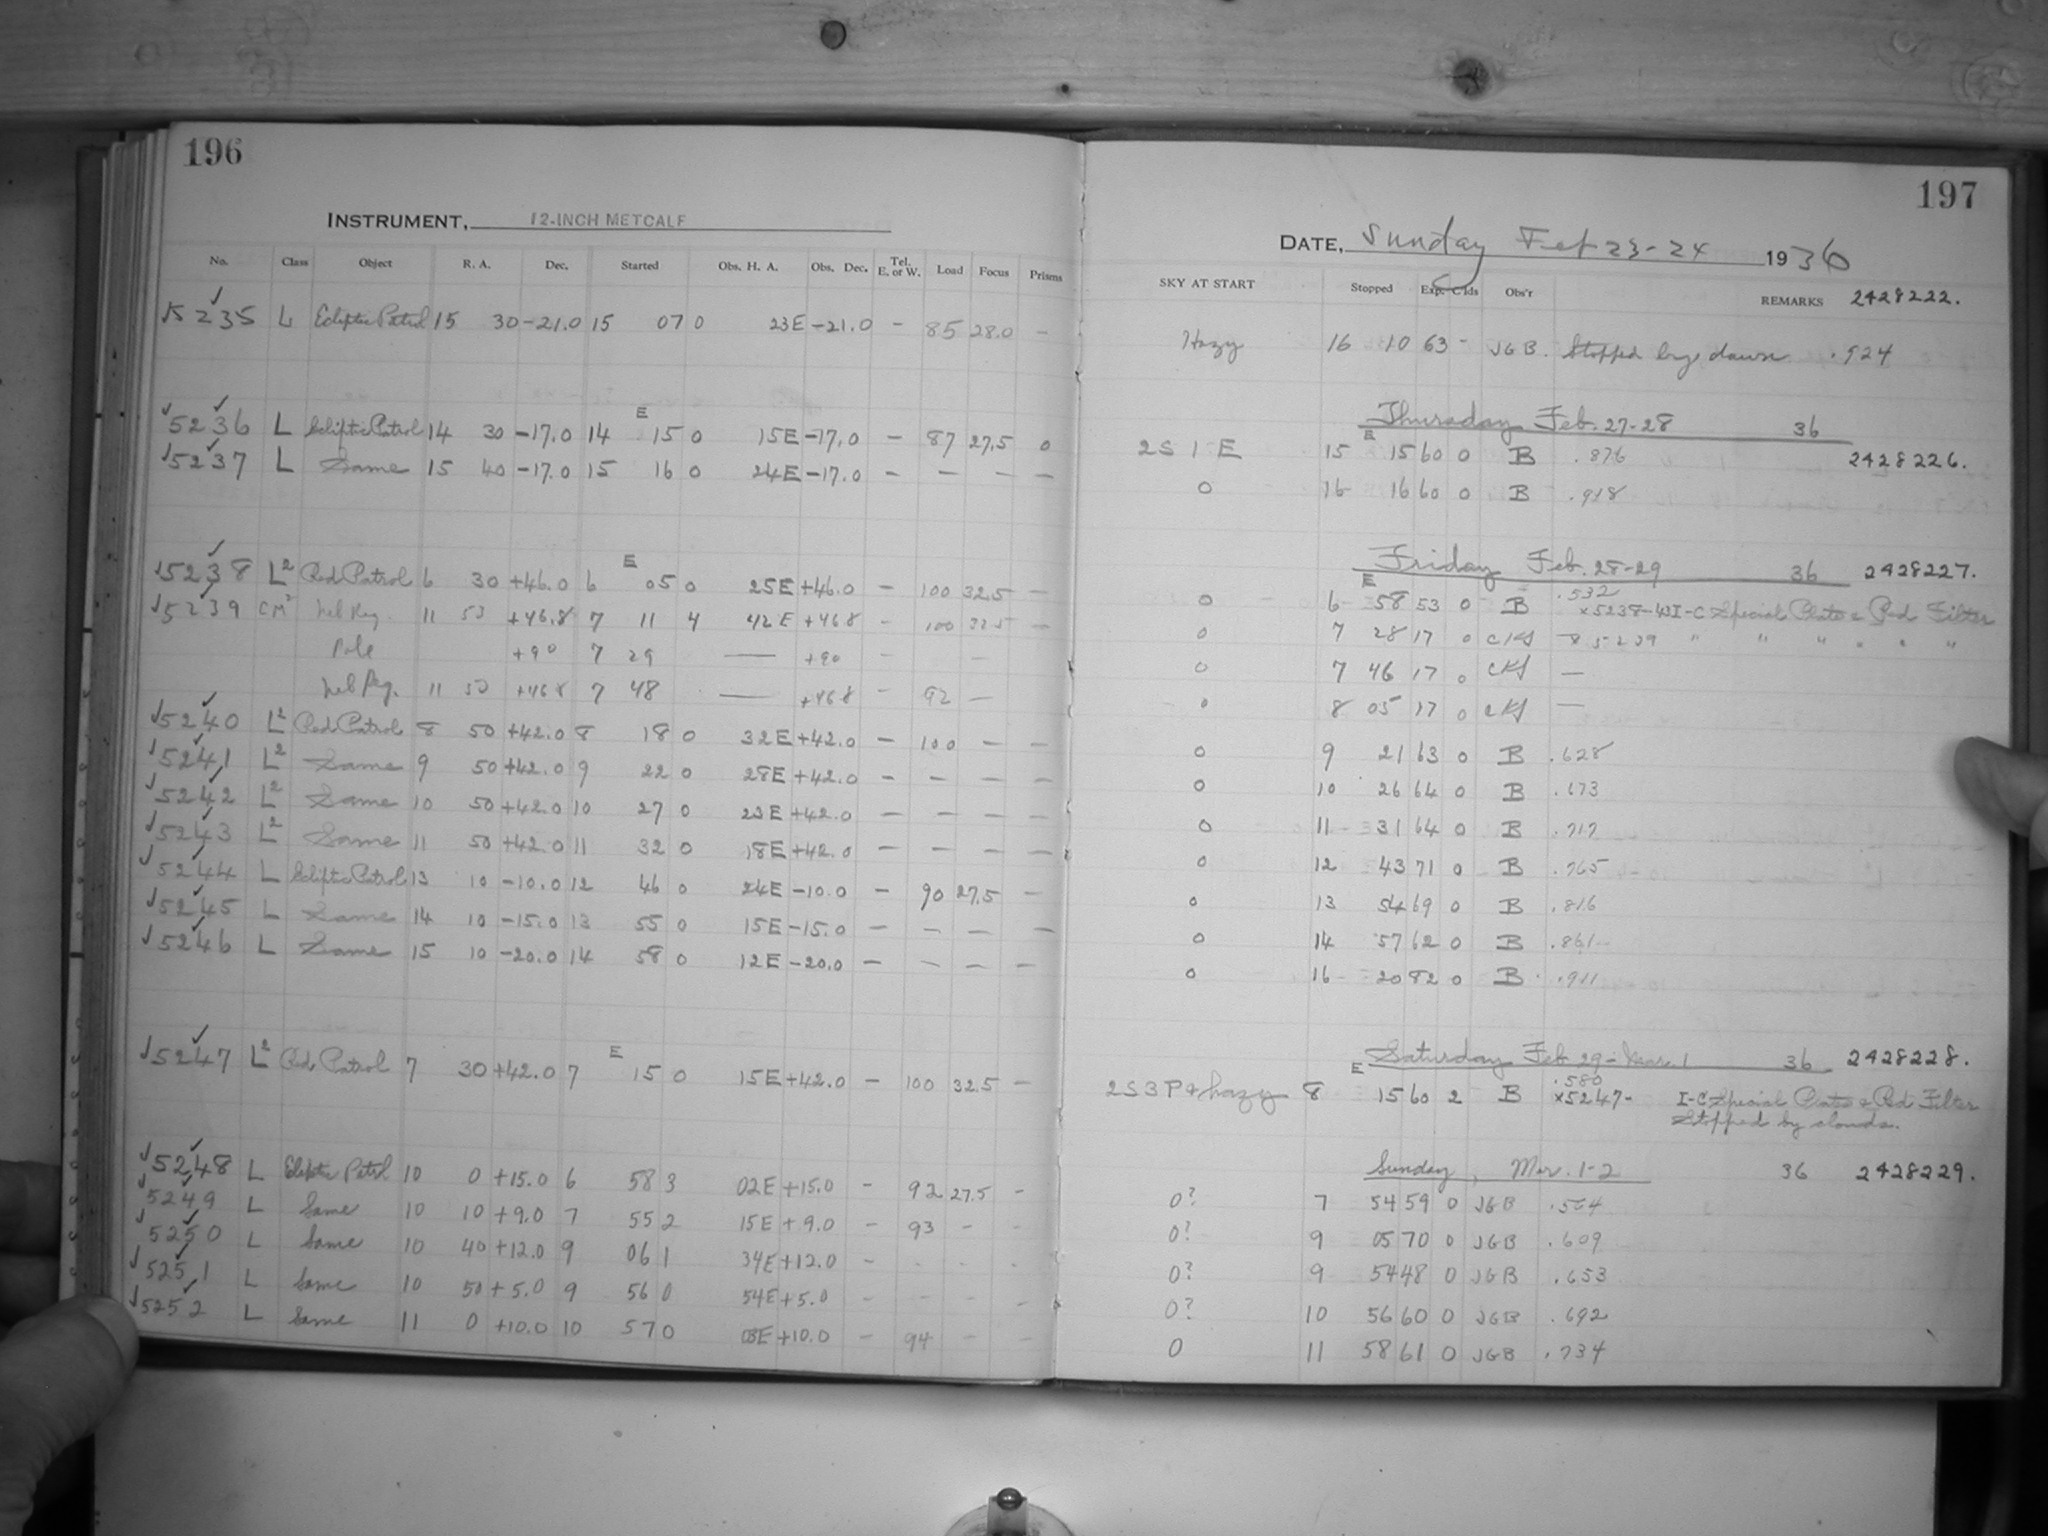 196
INSTRUMENT, 12-INCH METCALF
No. Class Object R. A. Dec. Started Obs. H. A. Obs. Dec. Tel. E. or W. Load Focus Prisms
15235 L Ecliptic Patrol 15 30 -21.0 15 07 0 23E -21.0 - 85 28.0 -
5236 L Ecliptic Patrol 14 30 -17.0 14 E 15 0 15E -17.0 - 87 27.5 0
5237 L Same 15 40 -17.0 15 16 0 24E -17.0 - - - -
5238 L2 Red Patrol 6 30 +46.0 6 E 05 0 25E +46.0 - 100 32.5 -
5239 CM2 11 53 +46.8 7 11 4 42E +46.8 - 100 32.5 -
Pole +90 7 29 — +90 - -
11 53 +46.8 7 48 — +46.8 - 92 -
5240 L2 Red Patrol 8 50 +42.0 8 18 0 32E +42.0 - 100 - -
5241 L2 Same 9 50 +42.0 9 22 0 28E +42.0 - - - -
5242 L2 Same 10 50 +42.0 10 27 0 23E +42.0 - - - -
5243 L2 Same 11 50 +42.0 11 32 0 18E +42.0 - - - -
5244 L Ecliptic Patrol 13 10 -10.0 12 46 0 24E -10.0 - 90 27.5 -
5245 L Same 14 10 -15.0 13 55 0 15E -15.0 - - - -
5246 L Same 15 10 -20.0 14 58 0 12E -20.0 - - - -
5247 L2 Red Patrol 7 30 +42.0 7 E 15 0 15E +42.0 - 100 32.5 -
5248 L Ecliptic Patrol 10 0 +15.0 6 58 3 02E +15.0 - 92 27.5 -
5249 L Same 10 10 +9.0 7 55 2 15E +9.0 - 93 - -
5250 L Same 10 40 +12.0 9 06 1 34E +12.0 - - - -
5251 L Same 10 50 +5.0 9 56 0 54E +5.0 - - - -
5252 L Same 11 0 +10.0 10 57 0 03E +10.0 - 94 - -
197
DATE, Sunday Feb 23-24 1936
SKY AT START Stopped Exp. C'lds Obs'r REMARKS 2428222.
Hazy 16 10 63 - JGB. Stopped by dawn .924
Thursday Feb. 27-28 36
2S 1 E E 15 15 60 0 B .876 2428226.
0 16 16 60 0 B .918
Friday Feb. 28-29 36 2428227.
E .532
0 6 58 53 0 B x5238-WI-C Special Plate & Red Filter
0 7 28 17 0 CKS x5239 " " " " " "
0 7 46 17 0 CKS —
0 8 05 17 0 CKS —
0 9 21 63 0 B .628
0 10 26 64 0 B .673
0 11 31 64 0 B .717
0 12 43 71 0 B .765
0 13 54 69 0 B .816
0 14 57 62 0 B .861
0 16 20 82 0 B .911
Saturday Feb 29-Mar. 1 36 2428228.
E .580
2S3P & hazy 8 15 60 2 B x5247- I-C Special Plate & Red Filter
Stopped by clouds.
Sunday, Mar. 1-2 36 2428229.
0? 7 54 59 0 JGB .564
0? 9 05 70 0 JGB .609
0? 9 54 48 0 JGB .653
0? 10 56 60 0 JGB .692
0 11 58 61 0 JGB .734